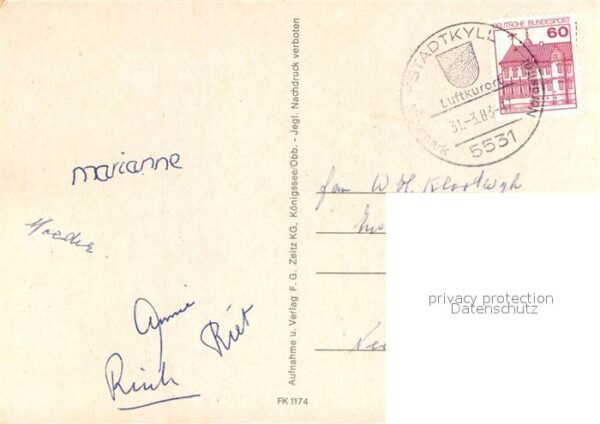 DEUTSCHE BUNDESPOST
60
STADTKYLL
Luftkurort
31.-3.83-
5531
marianne
Moeder.
Annie
Riet
Rink
fam W
privacy protection
Datenschutz
Aufnahme u. Verlag F. G. Zeitz KG, Königssee/Obb. - Jegl. Nachdruck verboten
FK 1174